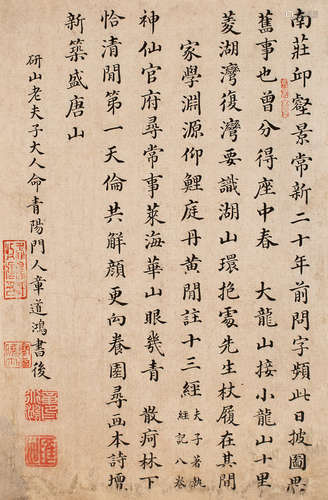 南莊邱壑景常新二十年前問字頻此日披圖思
舊事也曾分得座中春　大龍山接小龍山十里
菱湖灣復灣要識湖山環抱處先生杖履在其間
家學淵源仰鯉庭丹黃閒註十三經夫子著執經記八卷
神仙官府尋常事萊海華山眼幾青　散疴林下
恰清閒第一天倫共解顏更向養園尋畫本詩增
新築盛唐山
研山老夫子大人命青陽門人章道鴻書後